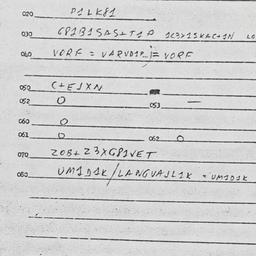 020 P1LK81
030 C81B1SAS+T1P 1C3X1SKAC+1N LO
040 VORF = VARVD1P j= VORF
050 C+EJXN
052 O 053 —
060 O
061 O 062 O
070 ZOB+Z3XG81VET
080 UM1D1K/LANGVAJL1K = UM1D1K